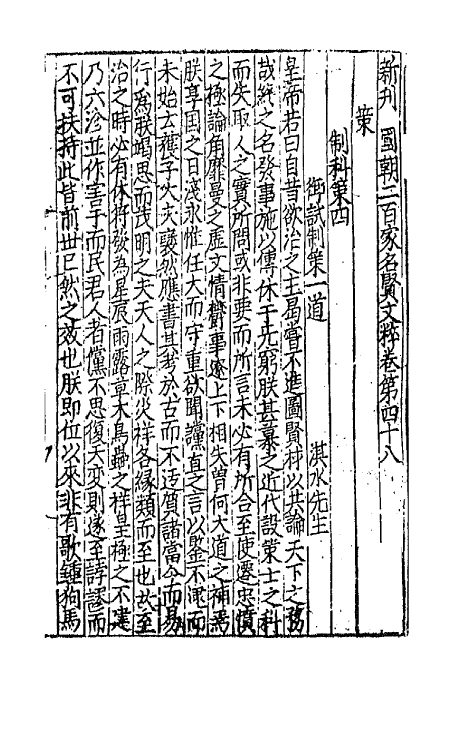 新刊 蜀朝二百家名賢文粹卷第四十八
策
制科策四
御試制策一道 淇水先生
皇帝若曰自昔欲治之主曷嘗不進圖賢材以共論天下之務
哉終之名發事施以傳休于無窮朕甚慕之近代設策士之科
而失取人之實所問或非要而所言未必有所合至使遷忠憤
之極論角靡曼之虛文情鬱事遂上下相失曾何大道之補焉
朕享国之日淺永惟任大而守重欲聞讜直之言以鑒不逮而
未始去獲子大夫襃然應書其考於古而不迃質諸當今而易
行為朕竭思而茂明之夫天人之際災祥各緣類而至也故至
治之時必有休符發為星辰雨露草木鳥蟲之祥皇極之不建
乃六沴並作害于而民君人者儻不思復天變則遂至誖謬而
不可扶持此皆前世已然之效也朕即位以來非有歌鍾狗馬